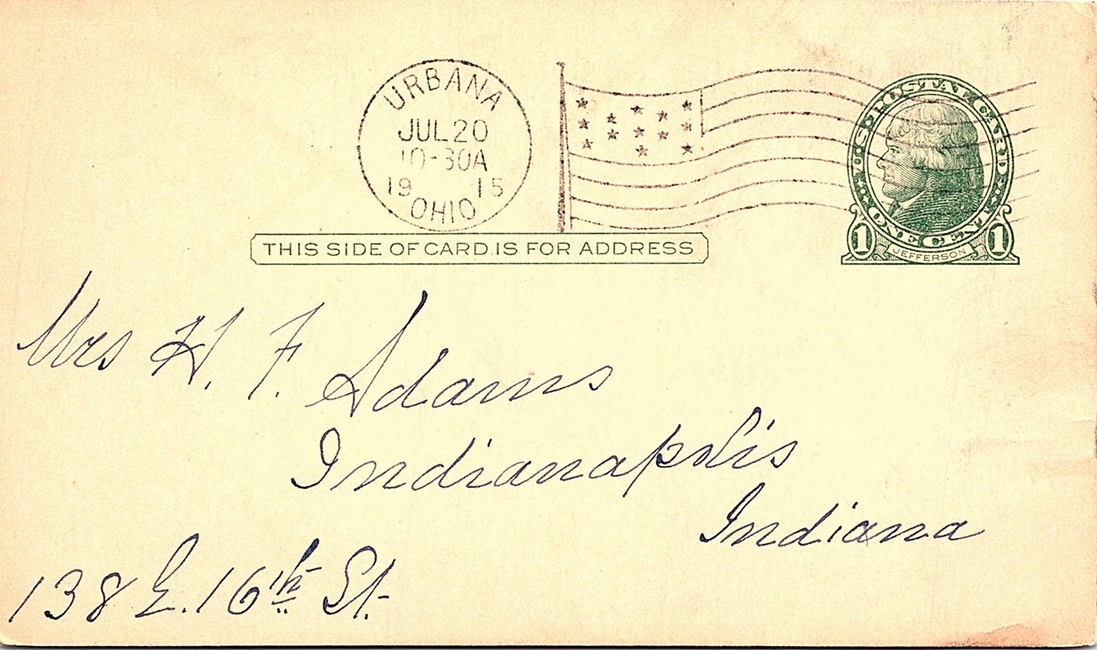 URBANA
JUL 20
10-30A
19 15
OHIO
U·S·POSTAL CARD
ONE CENT
1 JEFFERSON 1
THIS SIDE OF CARD IS FOR ADDRESS
Mrs H. F. Adams
Indianapolis
Indiana
138 E. 16th St.